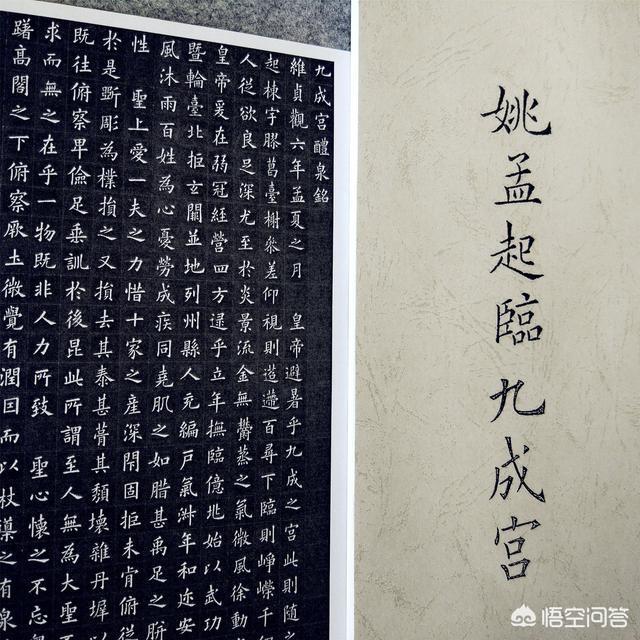 姚孟起臨九成宫
九成宫醴泉銘
維貞觀六年孟夏之月 皇帝避暑乎九成之宫此則随之
起棟宇膠葛臺榭叅差仰視則迢遰百尋下臨則崢嶸千
人從欲良足深尤至於炎景流金無欝蒸之氣微風徐動
皇帝爰在弱冠經營四方逮乎立年撫臨億兆始以武功
暨輪臺北拒玄闕並地列州縣人充編戶氣淑年和迩安
風沐雨百姓為心憂勞成疾同堯肌之如腊甚禹足之胼
性 聖上愛一夫之力惜十家之産深閉固拒未肯俯從
於是斲彫為樸損之又損去其泰甚葺其頹壞雜丹墀以
既往俯察卑儉足垂訓於後昆此所謂至人無為大聖
求而無之在乎一物既非人力所致 聖心懷之不忘
躇高閣之下俯察厥土微覺有潤因而以杖導之有泉
悟空问答